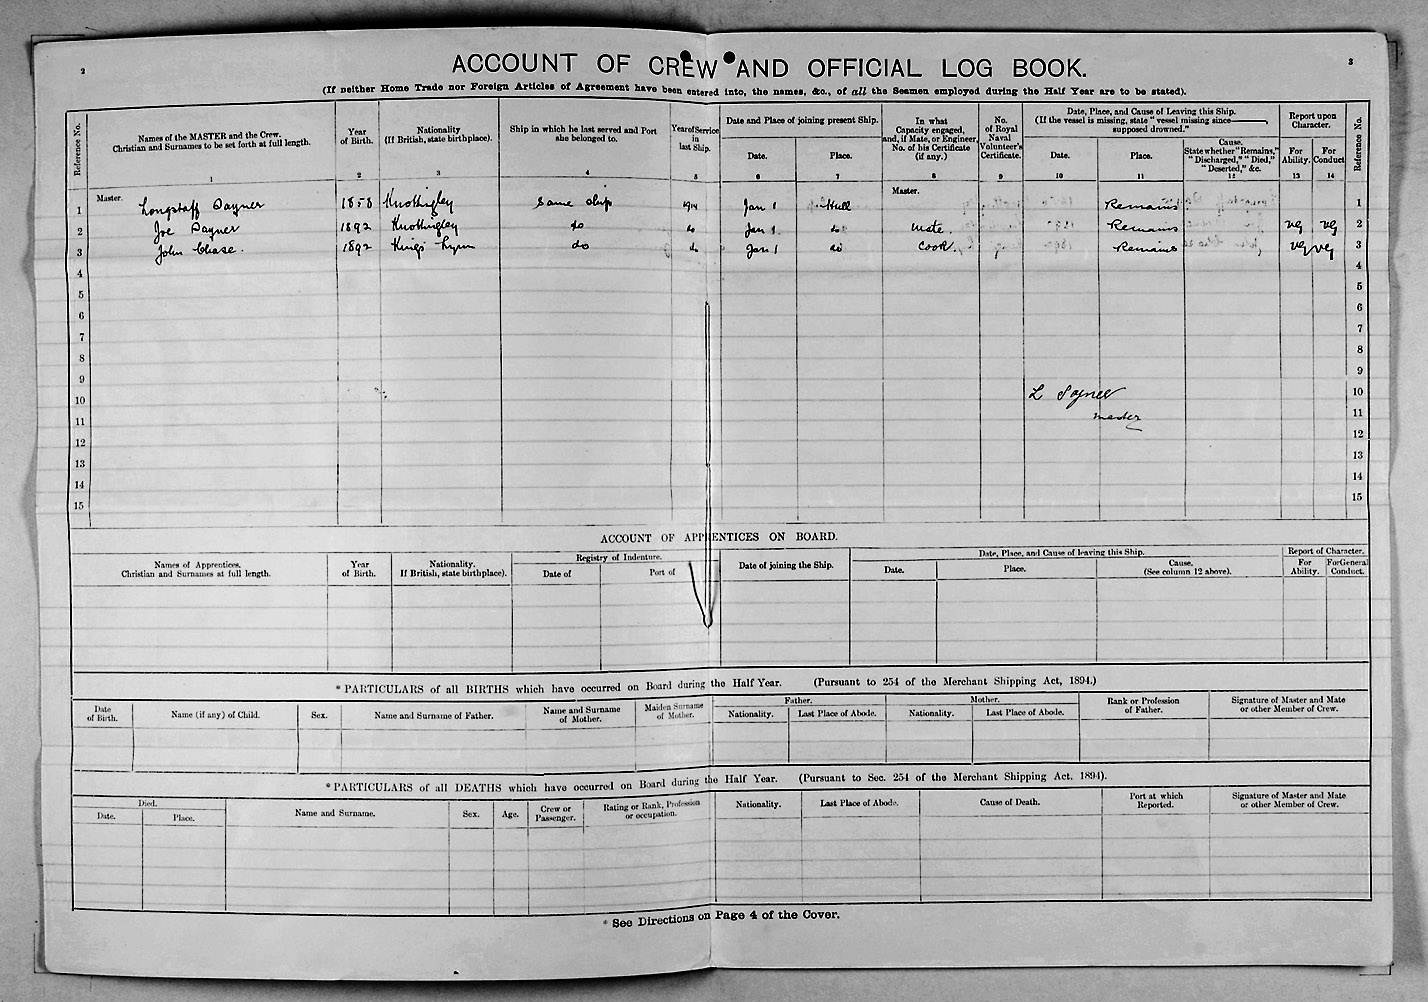 2
3
ACCOUNT OF CREW AND OFFICIAL LOG BOOK.
(If neither Home Trade nor Foreign Articles of Agreement have been entered into, the names, &c., of all the Seamen employed during the Half Year are to be stated).
Reference No.
Names of the MASTER and the Crew.
Christian and Surnames to be set forth at full length.
Year
of Birth.
Nationality
(If British, state birthplace).
Ship in which he last served and Port
she belonged to.
Year of Service
in
last Ship.
Date and Place of joining present Ship.
Date.
Place.
In what
Capacity engaged,
and, if Mate, or Engineer,
No. of his Certificate
(if any.)
No.
of Royal
Naval
Volunteer's
Certificate.
Date, Place, and Cause of Leaving this Ship.
(If the vessel is missing, state "vessel missing since———,
supposed drowned."
Date.
Place.
Cause.
State whether "Remains,"
"Discharged," "Died,"
"Deserted," &c.
Report upon
Character.
For
Ability.
For
Conduct
Reference No.
1 2 3 4 5 6 7 8 9 10 11 12 13 14
Master. Master.
1 Longstaff Sayner 1858 Knottingley Same ship 1914 Jan 1 Hull Remains 1
2 Joe Sayner 1892 Knottingley do do Jan 1 do Mate. Remains VG VG 2
3 John Chase. 1892 Kings Lynn do do Jan 1 do Cook. Remains VG VG 3
4 4
5 5
6 6
7 7
8 8
9 9
10 L Sayner 10
11 master 11
12 12
13 13
14 14
15 15
ACCOUNT OF APPRENTICES ON BOARD.
Names of Apprentices.
Christian and Surnames at full length.
Year
of Birth.
Nationality.
If British, state birthplace).
Registry of Indenture.
Date of
Port of
Date of joining the Ship.
Date, Place, and Cause of leaving this Ship.
Date.
Place.
Cause.
(See column 12 above).
Report of Character.
For
Ability.
For General
Conduct.
*PARTICULARS of all BIRTHS which have occurred on Board during the Half Year. (Pursuant to 254 of the Merchant Shipping Act, 1894.)
Date
of Birth.
Name (if any) of Child.
Sex.
Name and Surname of Father.
Name and Surname
of Mother.
Maiden Surname
of Mother.
Father.
Nationality.
Last Place of Abode.
Mother.
Nationality.
Last Place of Abode.
Rank or Profession
of Father.
Signature of Master and Mate
or other Member of Crew.
*PARTICULARS of all DEATHS which have occurred on Board during the Half Year. (Pursuant to Sec. 254 of the Merchant Shipping Act. 1894).
Died.
Date.
Place.
Name and Surname.
Sex.
Age.
Crew or
Passenger.
Rating or Rank, Profession
or occupation.
Nationality.
Last Place of Abode.
Cause of Death.
Port at which
Reported.
Signature of Master and Mate
or other Member of Crew.
* See Directions on Page 4 of the Cover.